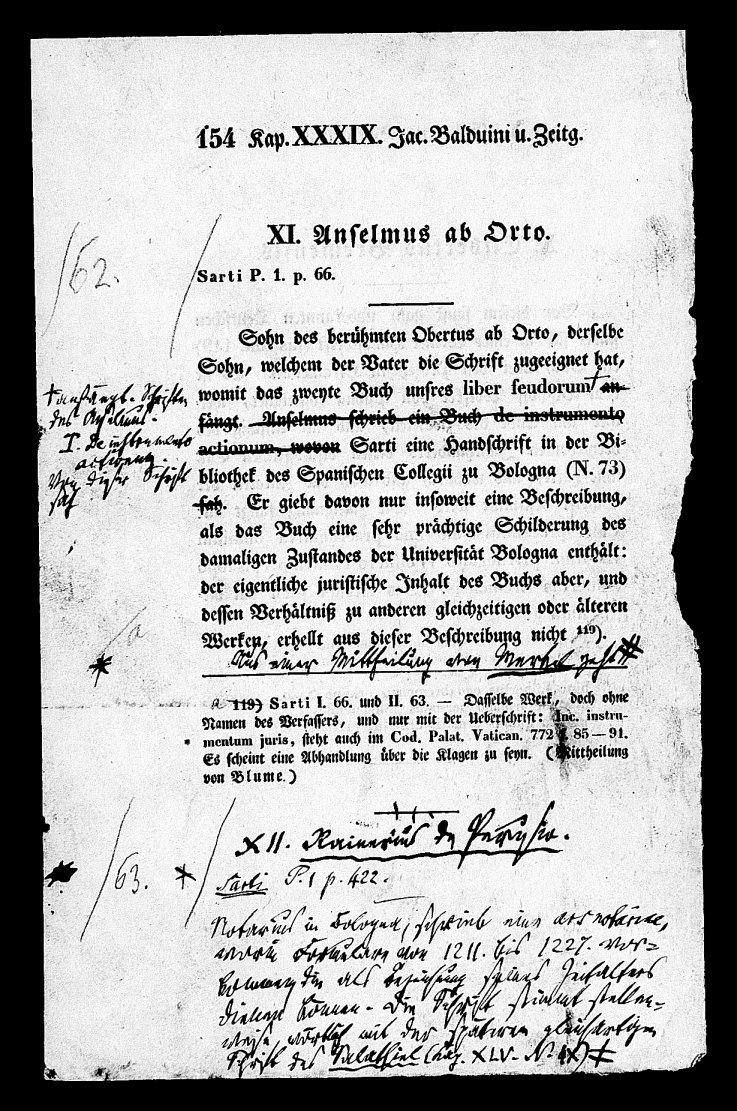 154 Kap. XXXIX. Jac. Balduini u. Zeitg.
XI. Anselmus ab Orto.
62.
Sarti P. 1. p. 66.
Sohn des berühmten Obertus ab Orto, derselbe
Sohn, welchem der Vater die Schrift zugeeignet hat,
womit das zweyte Buch unsres liber feudorum † an-
fängt. Anselmus schrieb ein Buch de instrumento
actionum, wovon Sarti eine Handschrift in der Bi-
bliothek des Spanischen Collegii zu Bologna (N. 73)
sah. Er giebt davon nur insoweit eine Beschreibung,
als das Buch eine sehr prächtige Schilderung des
damaligen Zustandes der Universität Bologna enthält:
der eigentliche juristische Inhalt des Buchs aber, und
dessen Verhältniß zu anderen gleichzeitigen oder älteren
Werken, erhellt aus dieser Beschreibung nicht 119).
† anfängt. Schriften
des Anselmus.
I. De instrumento
actionum.
Von dieser Schrift
sah
a
Aus einer Mittheilung von Merkel geht #
a 119) Sarti I. 66. und II. 63. — Dasselbe Werk, doch ohne
Namen des Verfassers, und nur mit der Ueberschrift: Inc. instru-
mentum juris, steht auch im Cod. Palat. Vatican. 772 f. 85—91.
Es scheint eine Abhandlung über die Klagen zu seyn. (Mittheilung
von Blume.)
XII. Rainerius de Perusio.
63.
Sarti P. 1 p. 422.
Notarius in Bologna, schrieb eine ars notariae,
worin Formulare von 1211. bis 1227. vor-
kommen die als seines Zeitalters
dienen können. Die Schrift stimmt stellen-
weise wörtlich mit der späteren gleichartigen
Schrift des Salathiel (Kap. XLV. N. IX) #